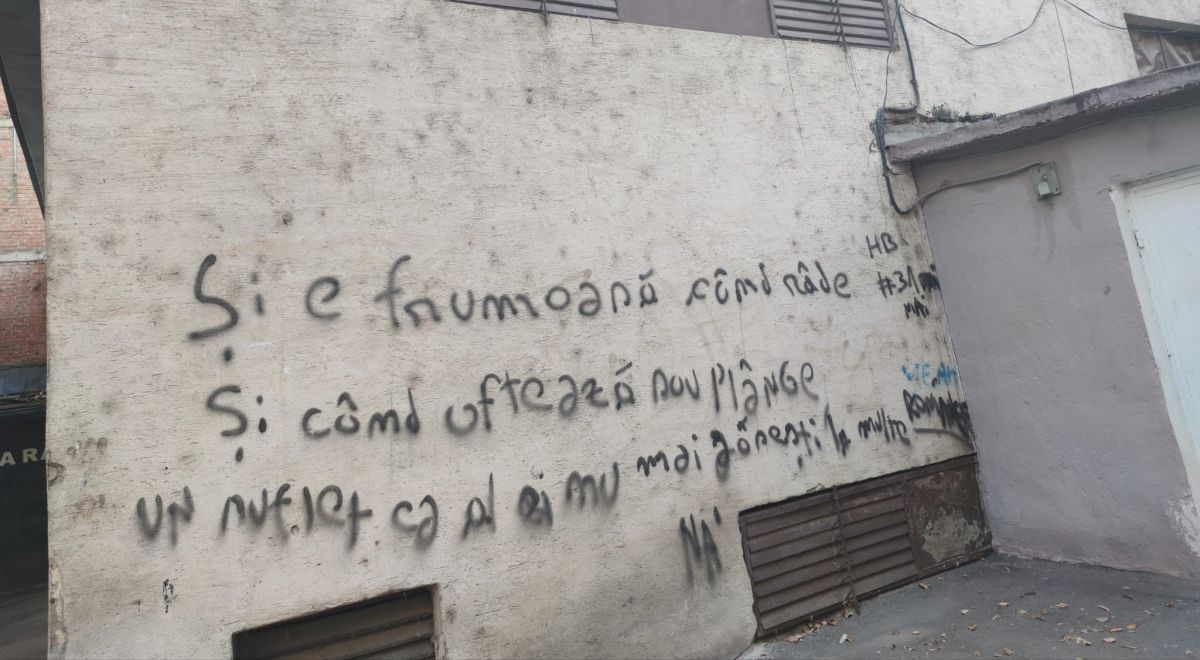 Și e frumoasă când râde
Și când oftează sau plânge
un suflet ca al ei nu mai găsești la multe
NA'
HB
ARA